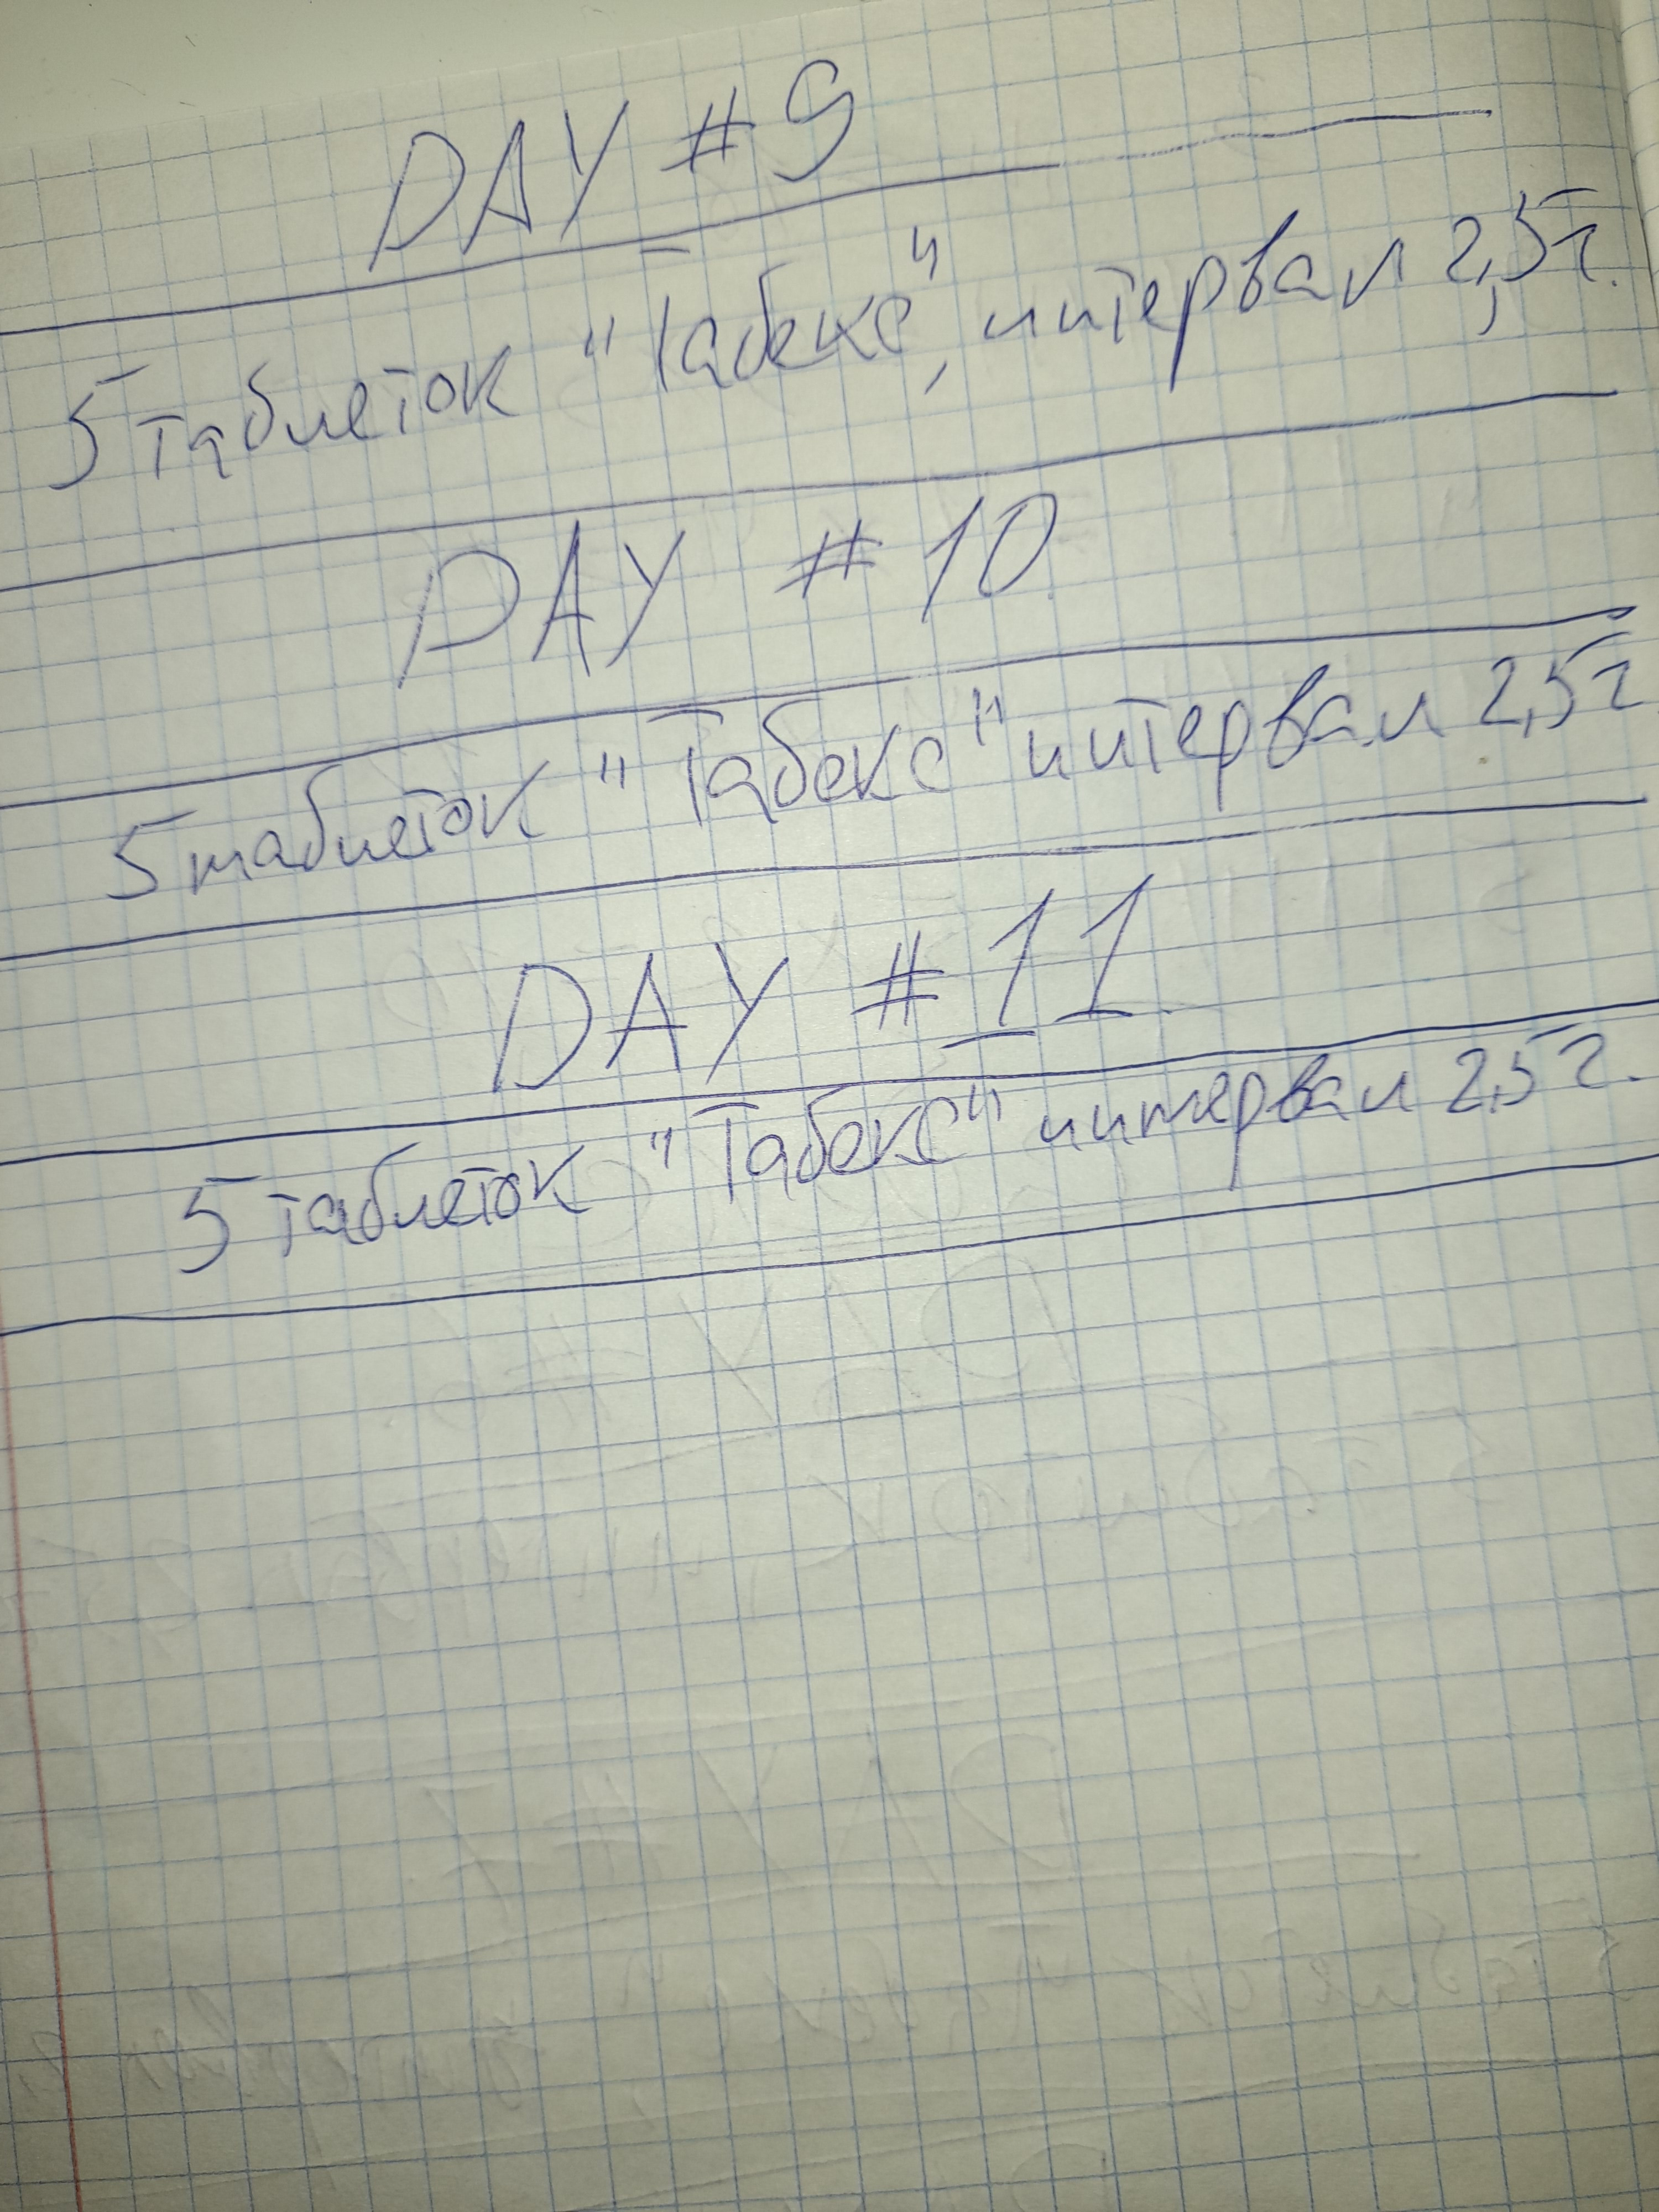 DAY #9
5 таблеток "Табекс", интервал 2,5г.
DAY #10
5 таблеток "Табекс" интервал 2,5г
DAY #11
5 таблеток "Табекс" интервал 2,5г.